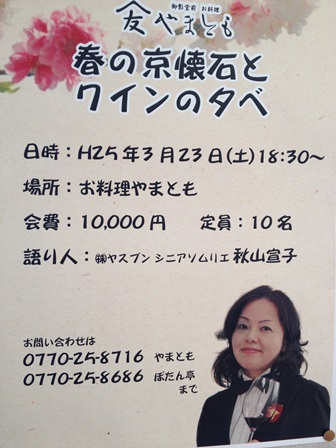 御影堂前 お料理
友 やまとも
春の京懐石と
ワインの夕べ
日時：H25年3月23日(土)18:30～
場所：お料理やまとも
会費：10,000円 定員：10名
語り人：㈱ヤスブン シニアソムリエ 秋山宣子
お問い合わせは
0770-25-8716 やまとも
0770-25-8686 ぼたん亭
まで